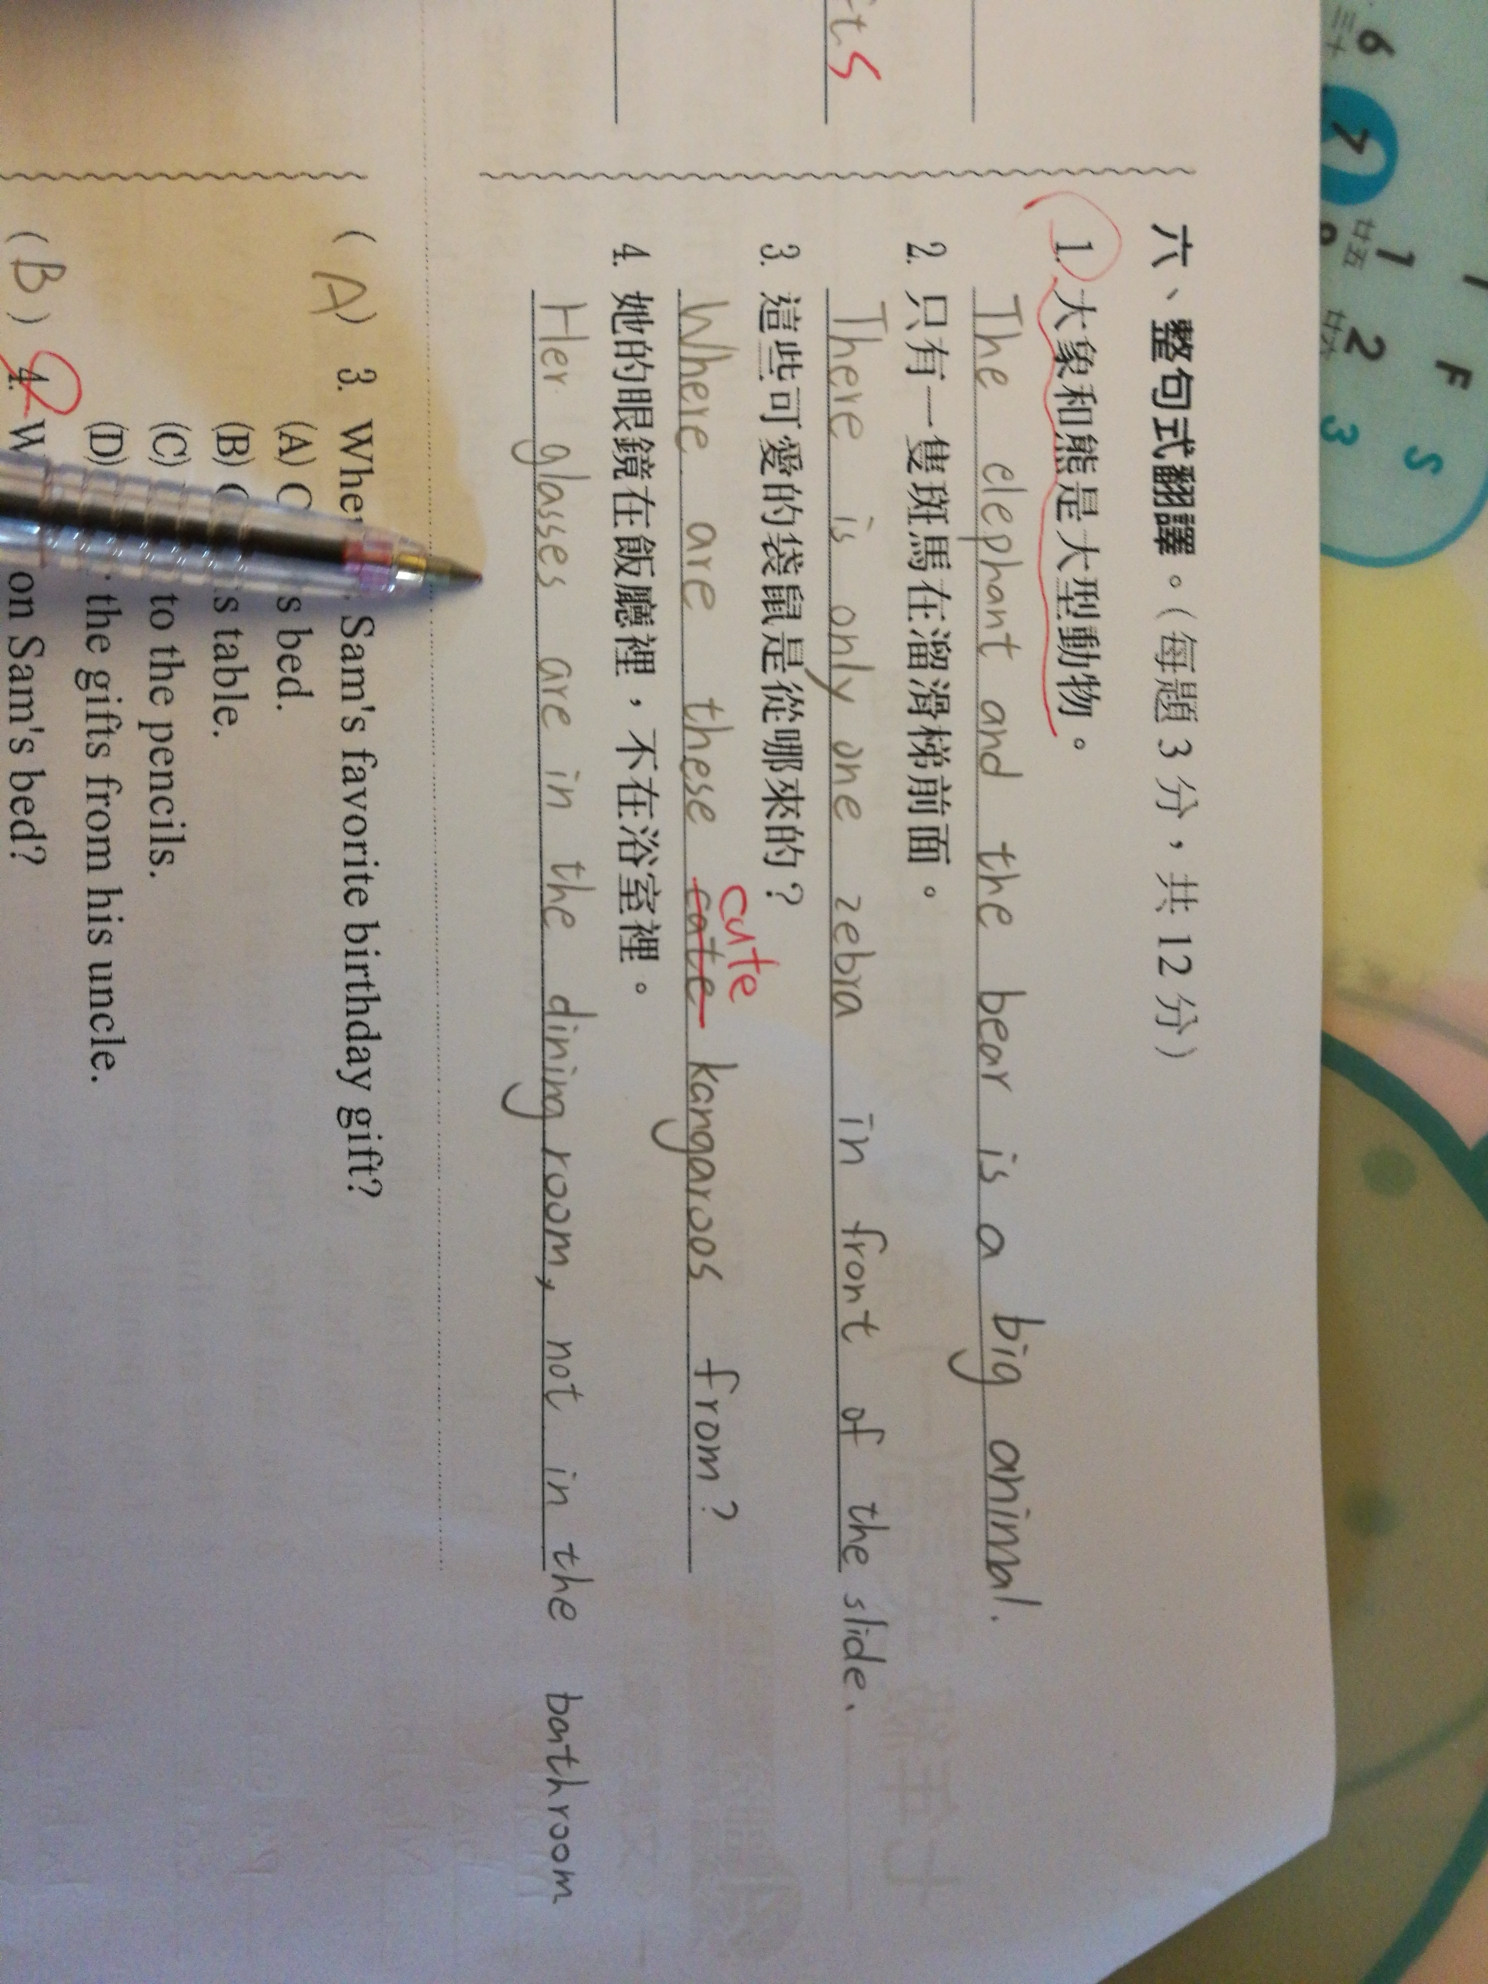 ts
六、整句式翻譯。(每題 3 分，共 12 分)
1. 大象和熊是大型動物。
The elephant and the bear is a big animal.
2. 只有一隻斑馬在溜滑梯前面。
There is only one zebra in front of the slide.
3. 這些可愛的袋鼠是從哪來的？
cute
Where are these cate kangaroos from?
4. 她的眼鏡在飯廳裡，不在浴室裡。
Her glasses are in the dining room, not in the bathroom
(A) 3. Sam's favorite birthday gift?
(A) s bed.
(B) s table.
(C) to the pencils.
(D) the gifts from his uncle.
(B) 4. W on Sam's bed?
F S
1 2 3
廿五 廿六
6 7